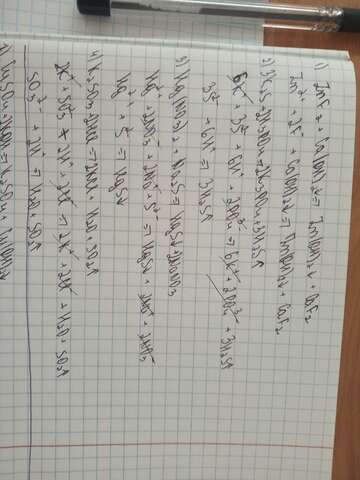 1) ZnF2 + Ca(OH)2 => Zn(OH)2↓ + CaF2
Zn²⁺ + 2F⁻ + Ca(OH)2 => Zn(OH)2↓ + CaF2
2) 3K2S + 2H3PO4 => 2K3PO4 + 3H2S↑
6K⁺ + 3S²⁻ + 6H⁺ + 2PO4³⁻ => 6K⁺ + 2PO4³⁻ + 3H2S↑
3S²⁻ + 6H⁺ => 3H2S↑
3) Hg(NO3)2 + Na2S => HgS↓ + 2NaNO3
Hg²⁺ + 2NO3⁻ + 2Na⁺ + S²⁻ => HgS↓ + 2Na⁺ + 2NO3⁻
Hg²⁺ + S²⁻ => HgS↓
4) K2SO3 + 2HCl => 2KCl + H2O + SO2↑
2K⁺ + SO3²⁻ + 2H⁺ + 2Cl⁻ => 2K⁺ + 2Cl⁻ + H2O + SO2↑
SO3²⁻ + 2H⁺ => H2O + SO2↑